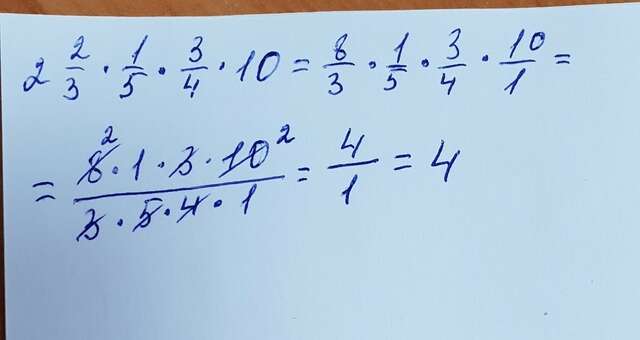 2 2/3 · 1/5 · 3/4 · 10 = 8/3 · 1/5 · 3/4 · 10/1 =
= 8² · 1 · 3 · 10² / 3 · 5 · 4 · 1 = 4/1 = 4